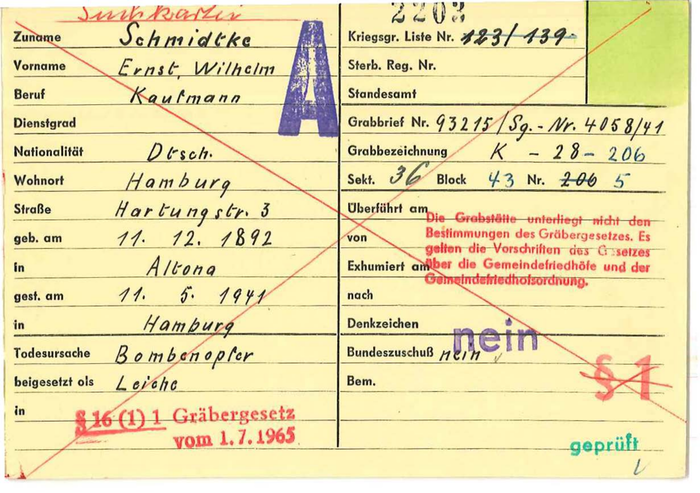 Suchkartei
2203
Zuname Schmidtke
Vorname Ernst, Wilhelm
Beruf Kaufmann
A
Dienstgrad
Nationalität Dtsch.
Wohnort Hamburg
Straße Hartungstr. 3
geb. am 11. 12. 1892
in Altona
gest. am 11. 5. 1941
in Hamburg
Todesursache Bombenopfer
beigesetzt als Leiche
in
§ 16 (1) 1 Gräbergesetz
vom 1. 7. 1965
Kriegsgr. Liste Nr. 123/139
Sterb. Reg. Nr.
Standesamt
Grabbrief Nr. 93215/Sg.-Nr. 4058/41
Grabbezeichnung K - 28 - 206
Sekt. 36 Block 43 Nr. 206 5
Überführt am
Die Grabstätte unterliegt nicht den
Bestimmungen des Gräbergesetzes. Es
gelten die Vorschriften des Gesetzes
über die Gemeindefriedhöfe und der
Gemeindefriedhofsordnung.
von
Exhumiert am
nach
Denkzeichen
nein
Bundeszuschuß nein
Bem.
§ 1
geprüft